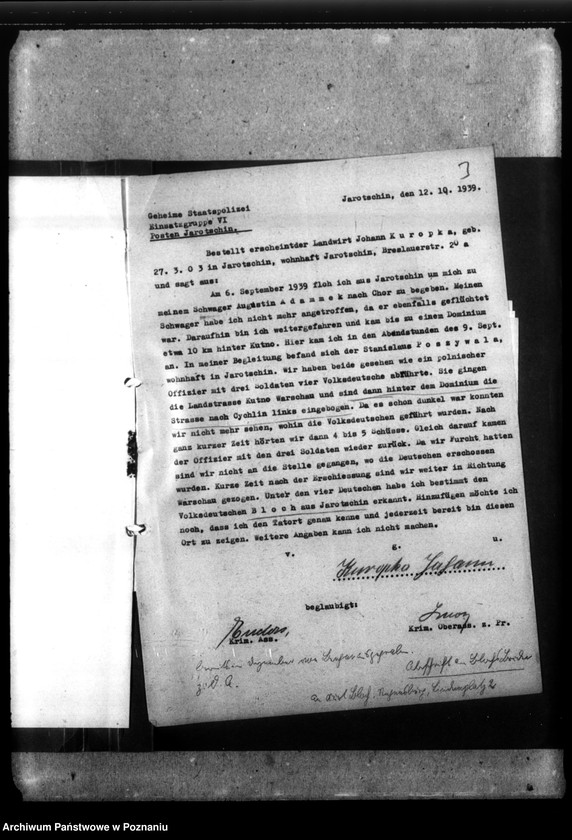 3
Jarotschin, den 12. 10. 1939.
Geheime Staatspolizei
Einsatzgruppe VI
Posten Jarotschin.
Bestellt erscheintder Landwirt Johann K u r o p k a, geb.
27. 3. 0 3 in Jarotschin, wohnhaft Jarotschin, Breslauerstr. 20 a
und sagt aus:
Am 6. September 1939 floh ich aus Jarotschin um mich zu
meinen Schwager Augustin A d a m m e k nach Chor zu begeben. Meinen
Schwager habe ich nicht mehr angetroffen, da er ebenfalls geflüchtet
war. Daraufhin bin ich weitergefahren und kam bis zu einem Dominium
etwa 10 km hinter Kutno. Hier kam ich in den Abendstunden des 9. Sept.
an. In meiner Begleitung befand sich der Stanislaus P o s z y w a l a,
wohnhaft in Jarotschin. Wir haben beide gesehen wie ein polnischer
Offizier mit drei Soldaten vier Volksdeutsche abführte. Sie gingen
die Landstrasse Kutno Warschau und sind dann hinter dem Dominium die
Strasse nach Cychlin links eingebogen. Da es schon dunkel war konnten
wir nicht mehr sehen, wohin die Volksdeutschen geführt wurden. Nach
ganz kurzer Zeit hörten wir dann 4 bis 5 Schüsse. Gleich darauf kamen
der Offizier mit den drei Soldaten wieder zurück. Da wir Furcht hatten
sind wir nicht an die Stelle gegangen, wo die Deutschen erschossen
wurden. Kurze Zeit nach der Erschiessung sind wir weiter in Richtung
Warschau gezogen. Unter den vier Deutschen habe ich bestimmt den
Volksdeutschen B l o c h aus Jarotschin erkannt. Hinzufügen möchte ich
noch, dass ich den Tatort genau kenne und jederzeit bereit bin diesen
Ort zu zeigen. Weitere Angaben kann ich nicht machen.
v. g. u.
Kuropka Johann
beglaubigt:
Krim. Ass.
Krim. Oberass. z. Pr.
z. d. A.
Abschrift an
Archiwum Państwowe w Poznaniu